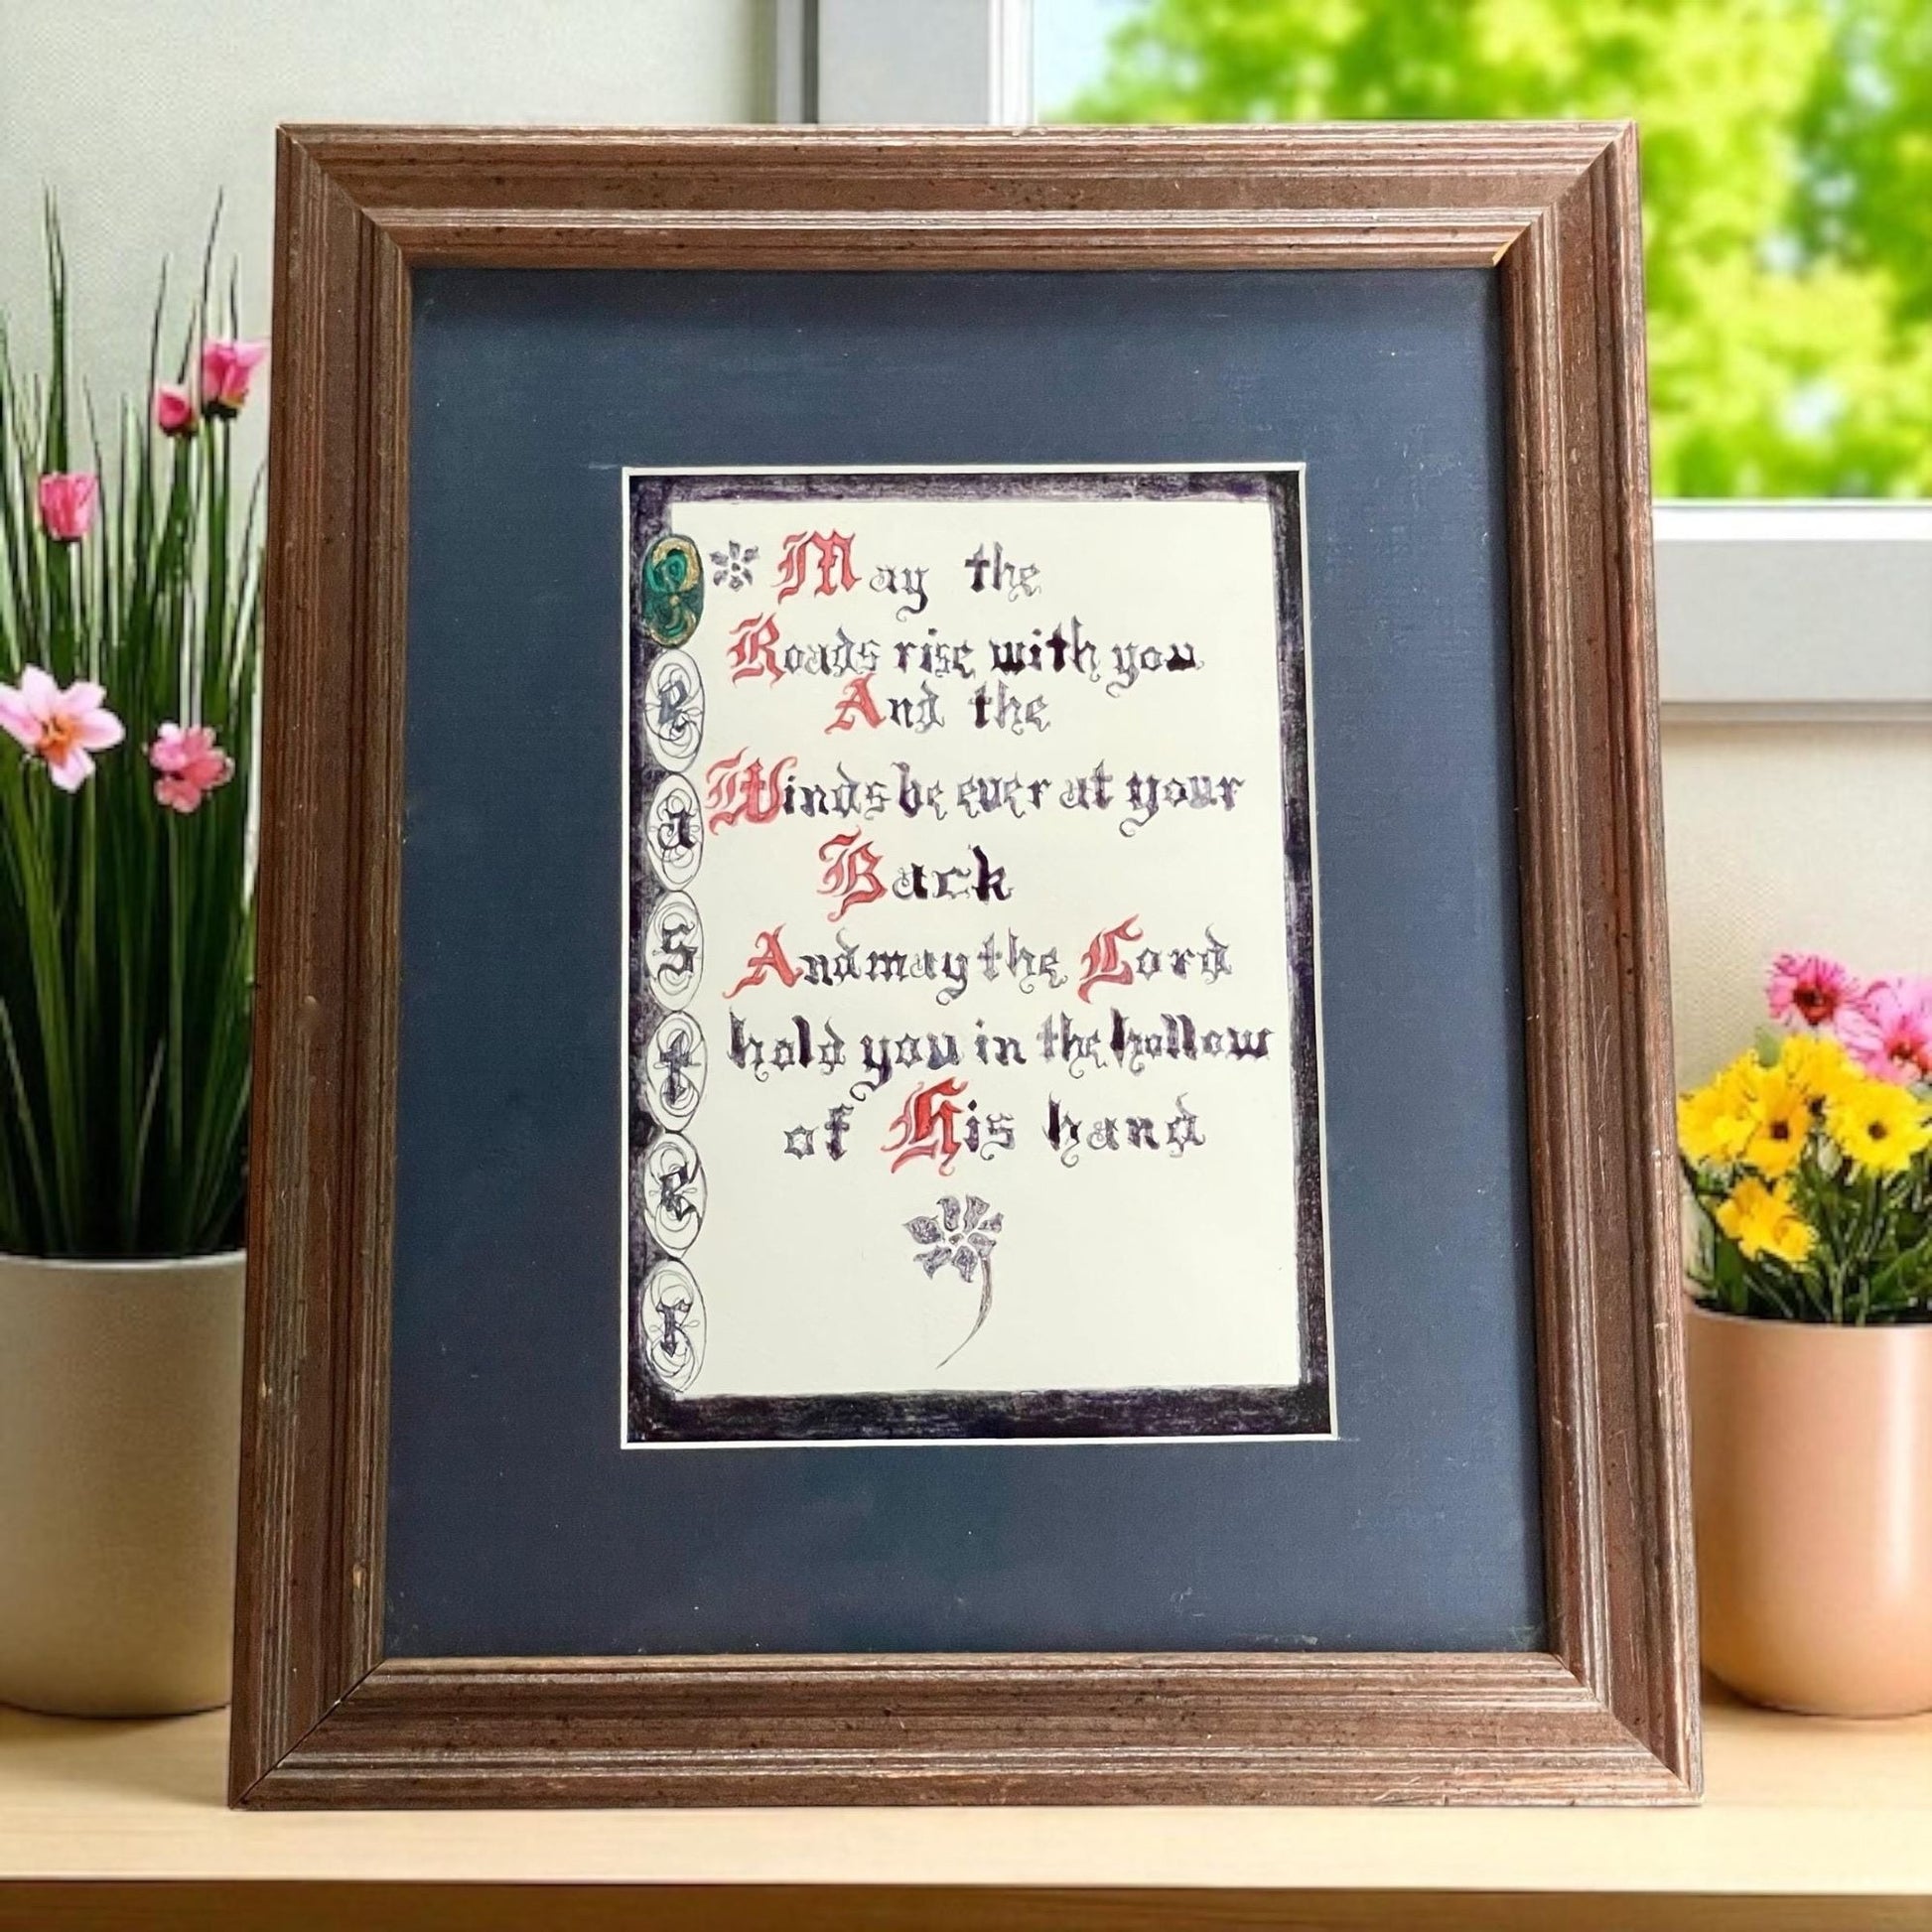 May the
Roads rise with you
And the
Winds be ever at your
Back
And may the Lord
hold you in the hollow
of His hand
e
a
s
t
e
r